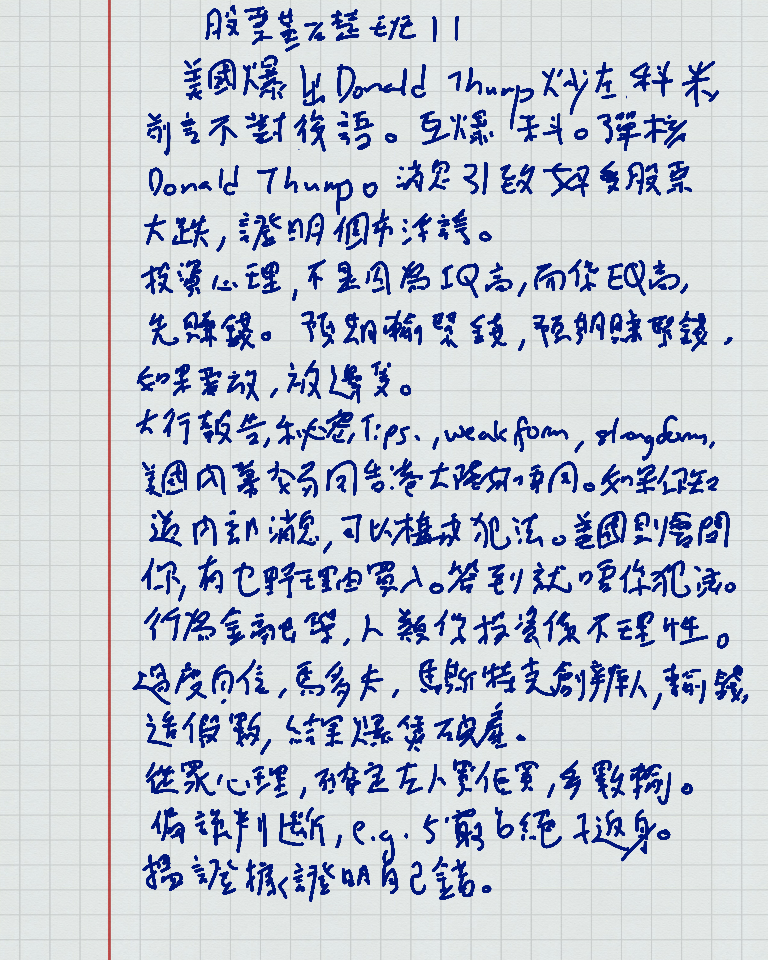 股票基石整班11
美國爆出Donald Thump炒左料米
前言不對後語。互爆料。彈核
Donald Thump。消息引致好多股票
大跌,證明個市浮誇。
投資心理,不是因為IQ高,而係EQ高,
先賺錢。預期輸緊錢,預期賺緊錢,
如果要放,放邊隻。
大行報告,秘密Tips.,weak form, strong form,
美國內幕交易同香港大陸好唔同。如果你知
道內部消息,可以構成犯法。美國則會問
你,有乜野理由買入。答到就唔係犯法。
行為金融學,人類係投資係不理性。
過度自信,馬多夫,馬斯特支創辦人,輸錢,
造假數,結果爆煲破產。
從眾心理,確定左人買佢買,多數輸。
偏誤判斷,e.g. 5窮6絕7返身。
搵證據證明自己錯。